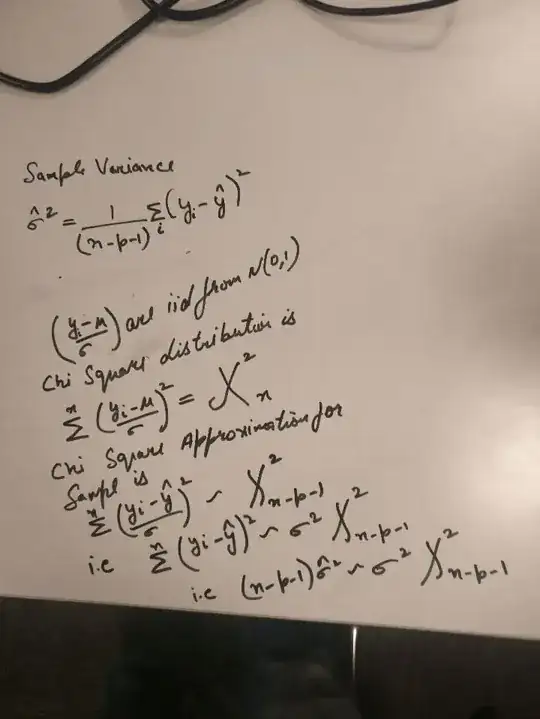 Sample Variance
σ̂² = 1/(n-p-1) Σᵢ (yᵢ - ŷ)²
(yᵢ-μ/σ) are iid from N(0,1)
Chi Square distribution is
Σⁿ (yᵢ-μ/σ)² = χ²ₙ
Chi Square Approximation for
Sample is
Σⁿ (yᵢ-ŷ/σ)² ~ χ²ₙ₋ₚ₋₁
i.e Σⁿ (yᵢ-ŷ)² ~ σ² χ²ₙ₋ₚ₋₁
i.e (n-p-1)σ̂² ~ σ² χ²ₙ₋ₚ₋₁